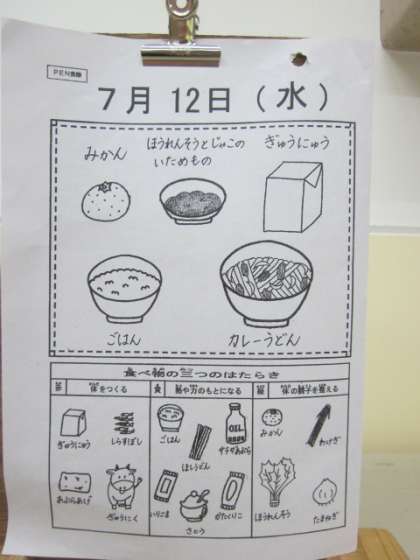 ７月 12日 （水）
みかん
ほうれんそうとじゃこの
いためもの
ぎゅうにゅう
ごはん
カレーうどん
食べ物の三つのはたらき
赤 体をつくる
黄 熱や力のもとになる
緑 体の調子を整える
ぎゅうにゅう
しらすぼし
あぶらあげ
ぎゅうにく
ごはん
ほしうどん
OIL
いりごま
さとう
かたくりこ
みかん
わけぎ
ほうれんそう
たまねぎ